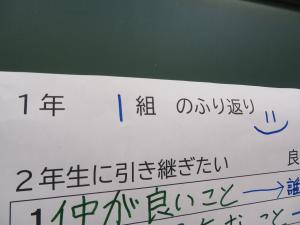 1年 1組 のふり返り
2年生に引き継ぎたい 良
1 仲が良いこと→誰